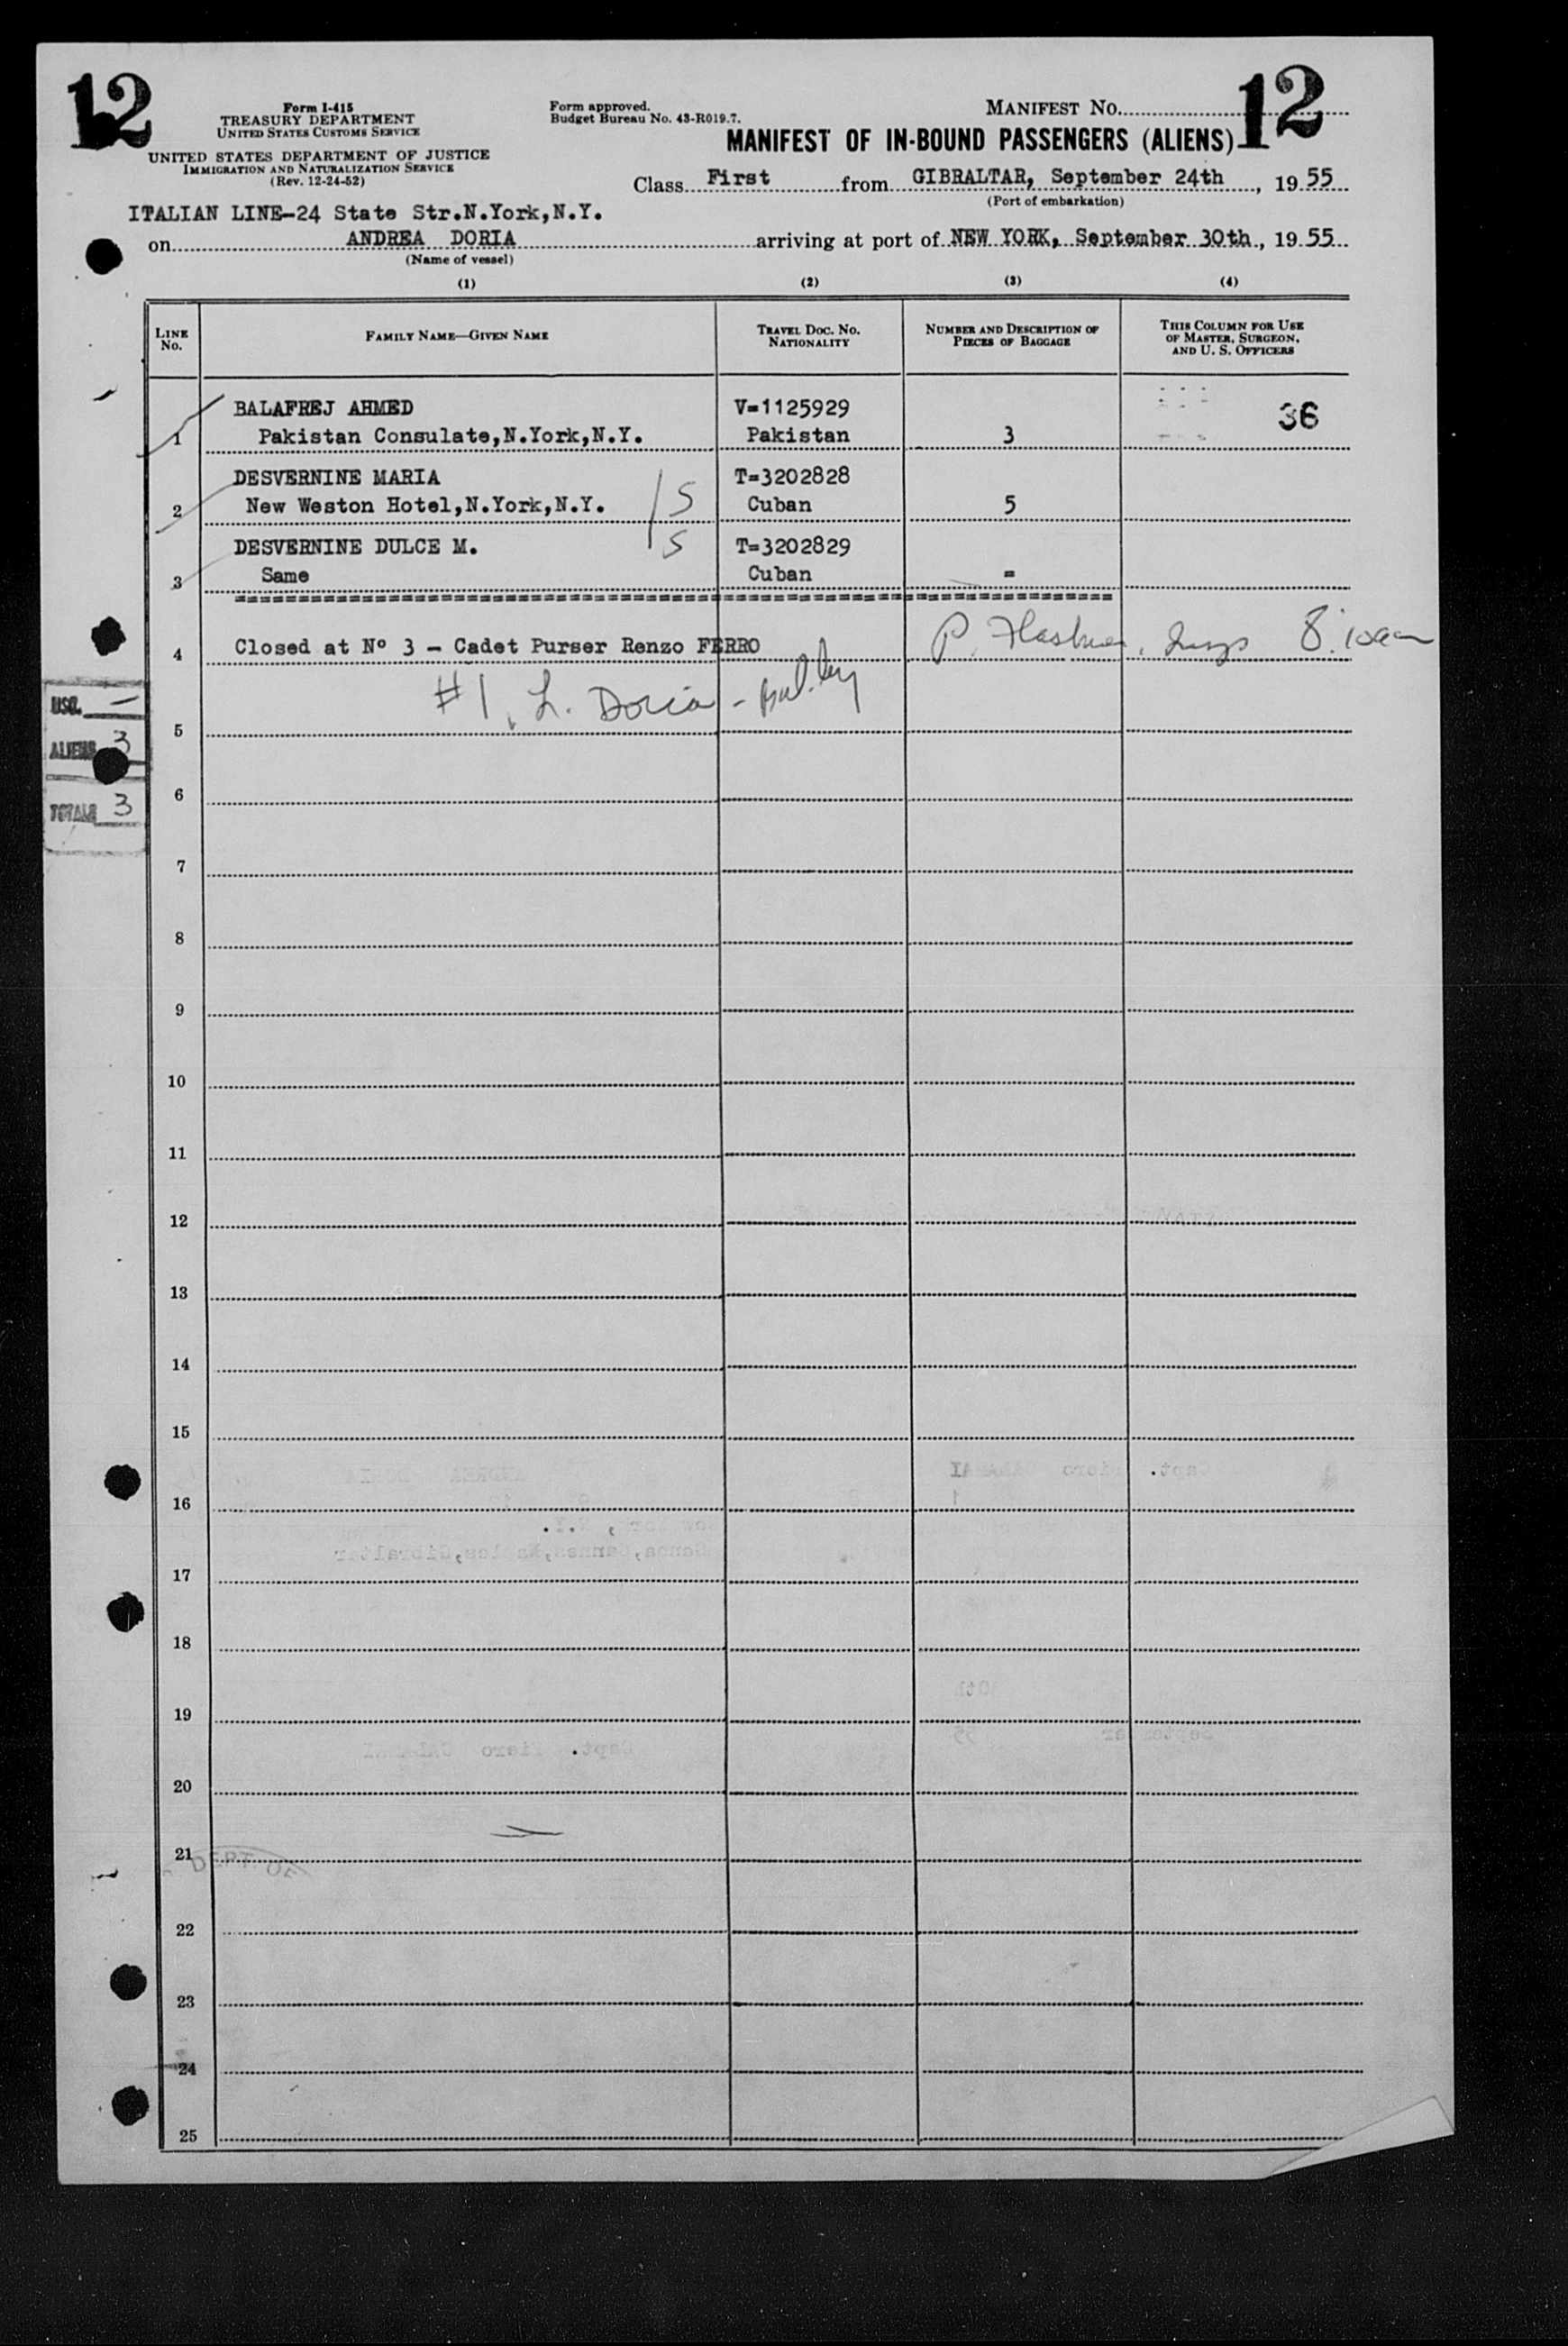 12
Form I-415
TREASURY DEPARTMENT
UNITED STATES CUSTOMS SERVICE
UNITED STATES DEPARTMENT OF JUSTICE
IMMIGRATION AND NATURALIZATION SERVICE
(Rev. 12-24-52)
Form approved.
Budget Bureau No. 43-R019.7.
MANIFEST No. 12
MANIFEST OF IN-BOUND PASSENGERS (ALIENS)
Class First from GIBRALTAR, September 24th, 19 55
(Port of embarkation)
ITALIAN LINE-24 State Str.N.York,N.Y.
on ANDREA DORIA arriving at port of NEW YORK, September 30th, 19 55
(Name of vessel)
(1) (2) (3) (4)
LINE No. FAMILY NAME—GIVEN NAME TRAVEL DOC. NO. NATIONALITY NUMBER AND DESCRIPTION OF PIECES OF BAGGAGE THIS COLUMN FOR USE OF MASTER, SURGEON, AND U. S. OFFICERS
BALAFREJ AHMED V=1125929 36
1 Pakistan Consulate,N.York,N.Y. Pakistan 3
DESVERNINE MARIA T=3202828
2 New Weston Hotel,N.York,N.Y. S Cuban 5
DESVERNINE DULCE M. S T=3202829
3 Same Cuban =
4 Closed at Nº 3 - Cadet Purser Renzo FERRO P.
#1, L. Doria -
USC. —
ALIENS 3
TOTALS 3
5
6
7
8
9
10
11
12
13
14
15
16
17
18
19
20
21
DEPT. OF
22
23
24
25